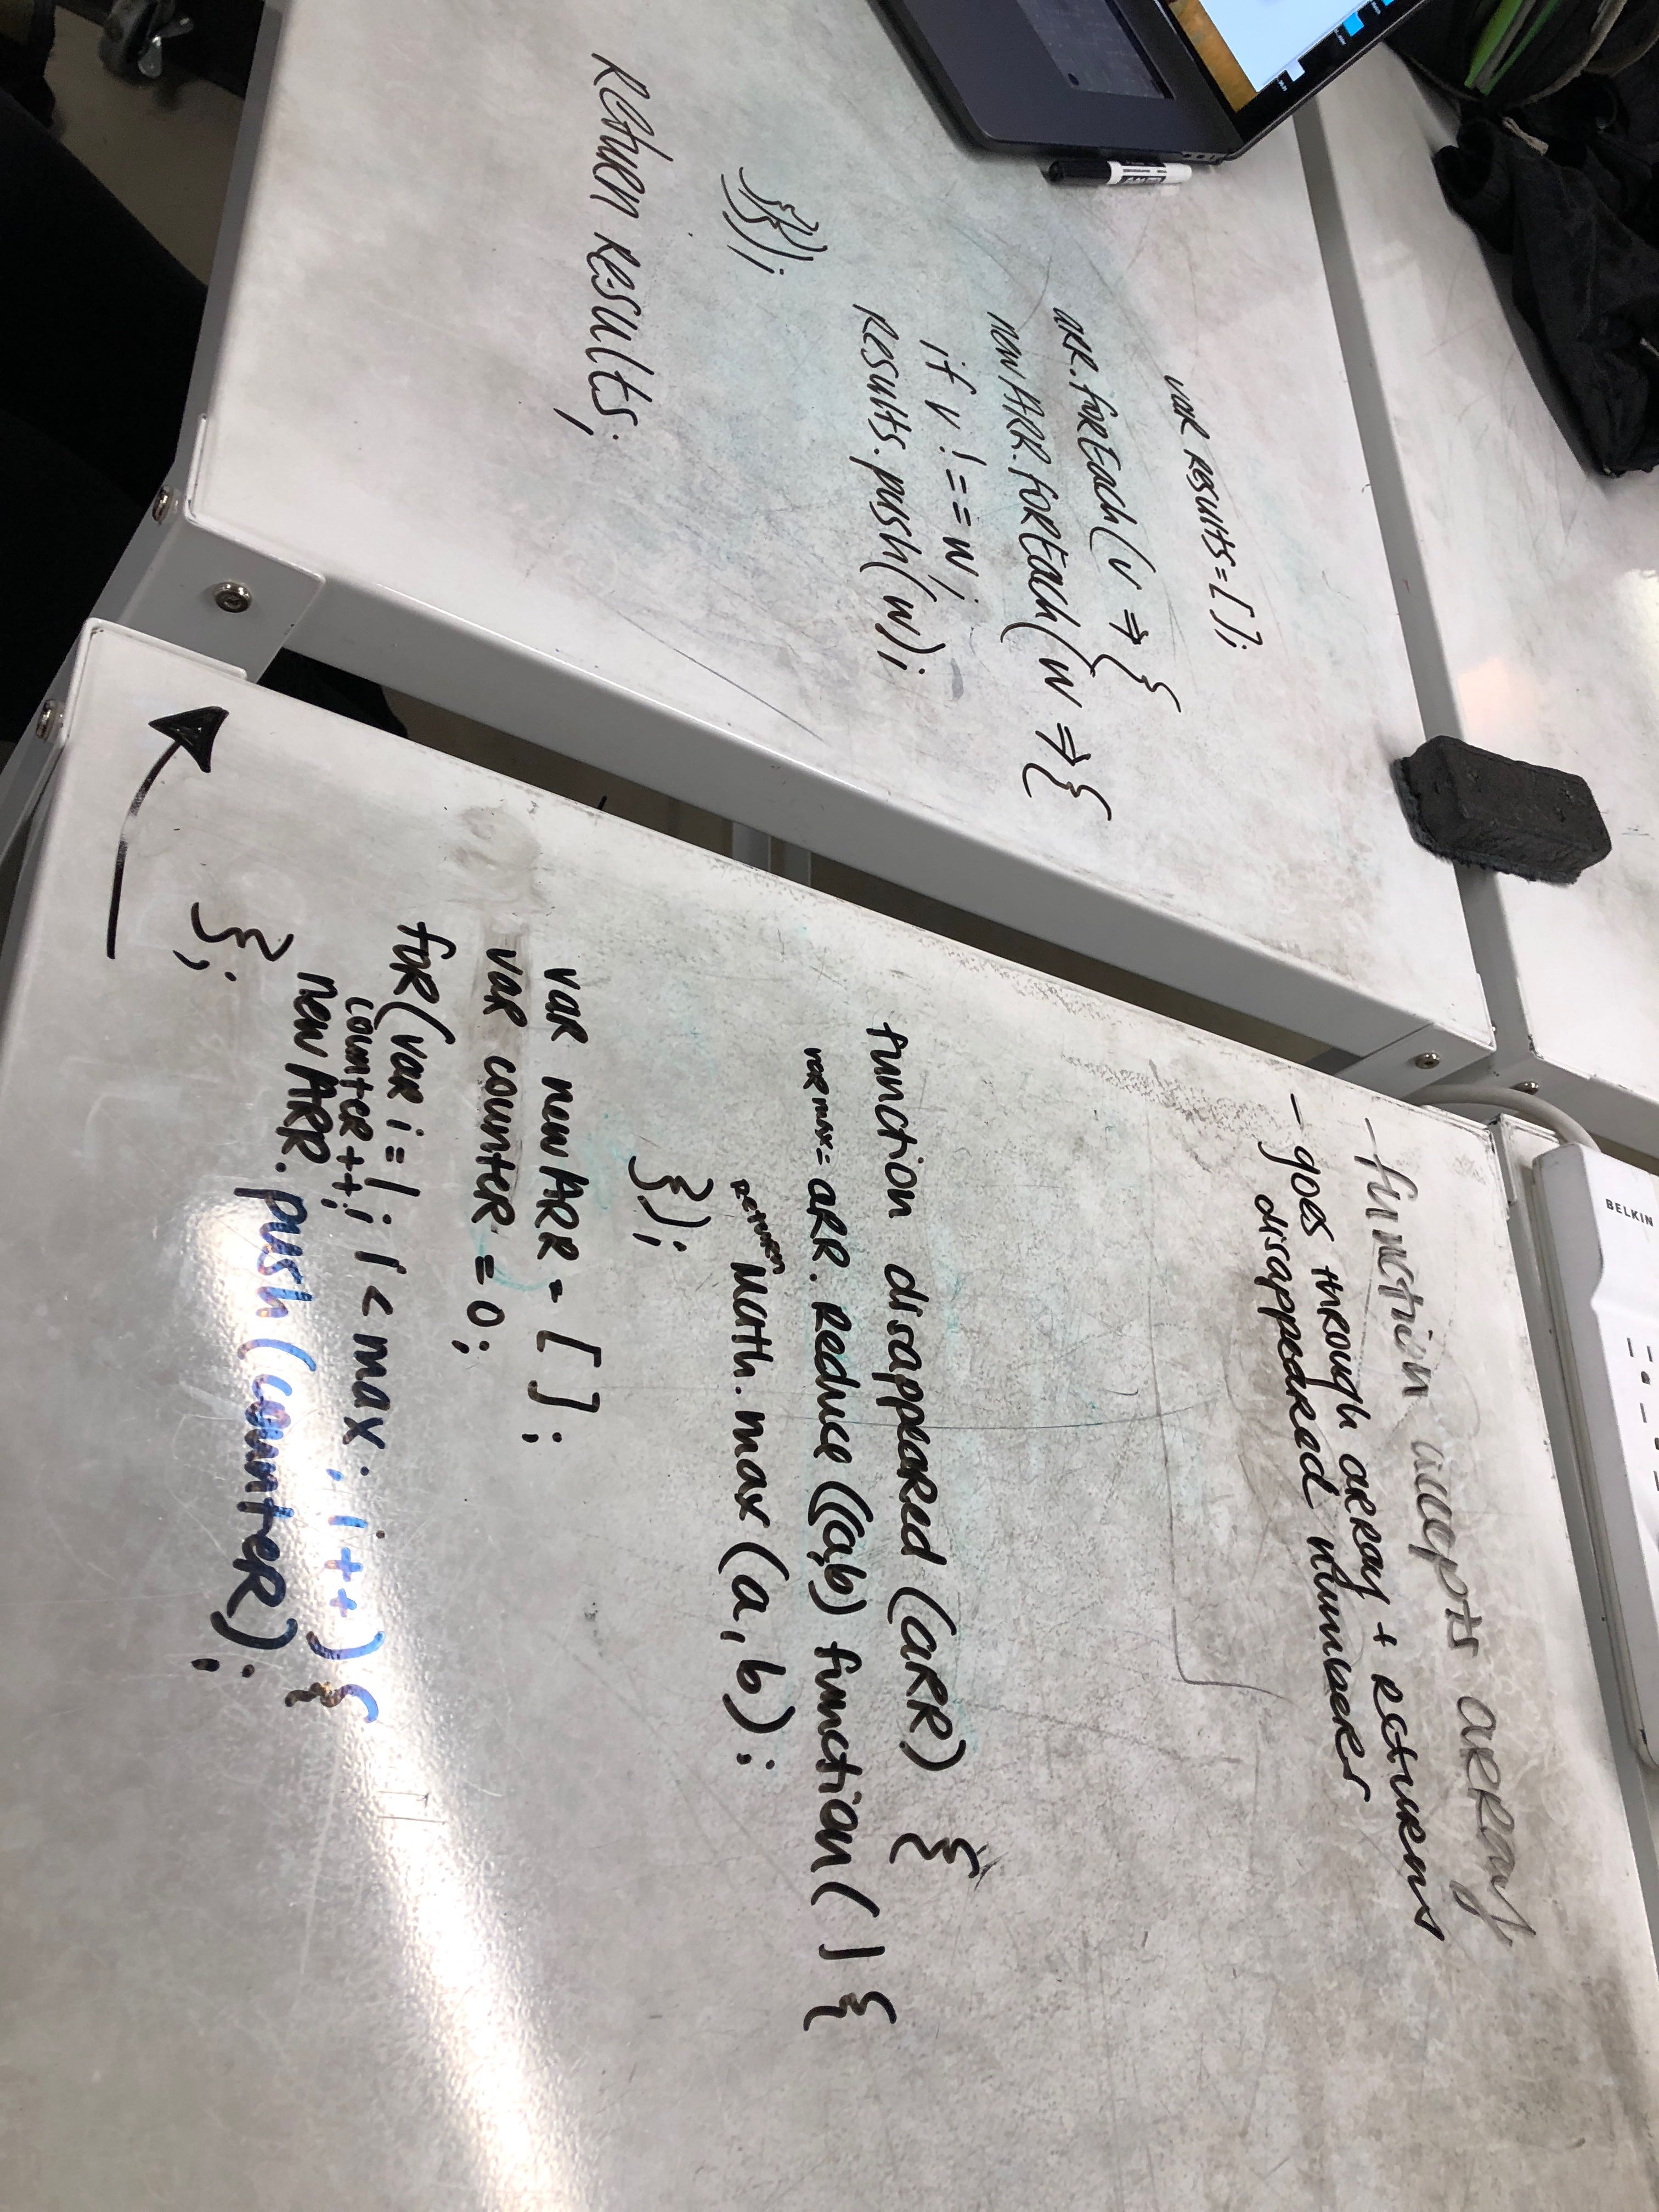 - function accepts array
- goes through array + returns
disappeared numbers
function disappeared (arr) {
var max = arr.reduce((a,b) function( ) {
return Math.max(a,b);
});
var newArr = [ ];
var counter = 0;
for(var i=1; i < max; i++) {
counter++;
newArr.push(counter);
};
var results = [ ];
arr.forEach(v => {
newArr.forEach(w => {
if v !== w;
results.push(w);
}});
return results;
BELKIN